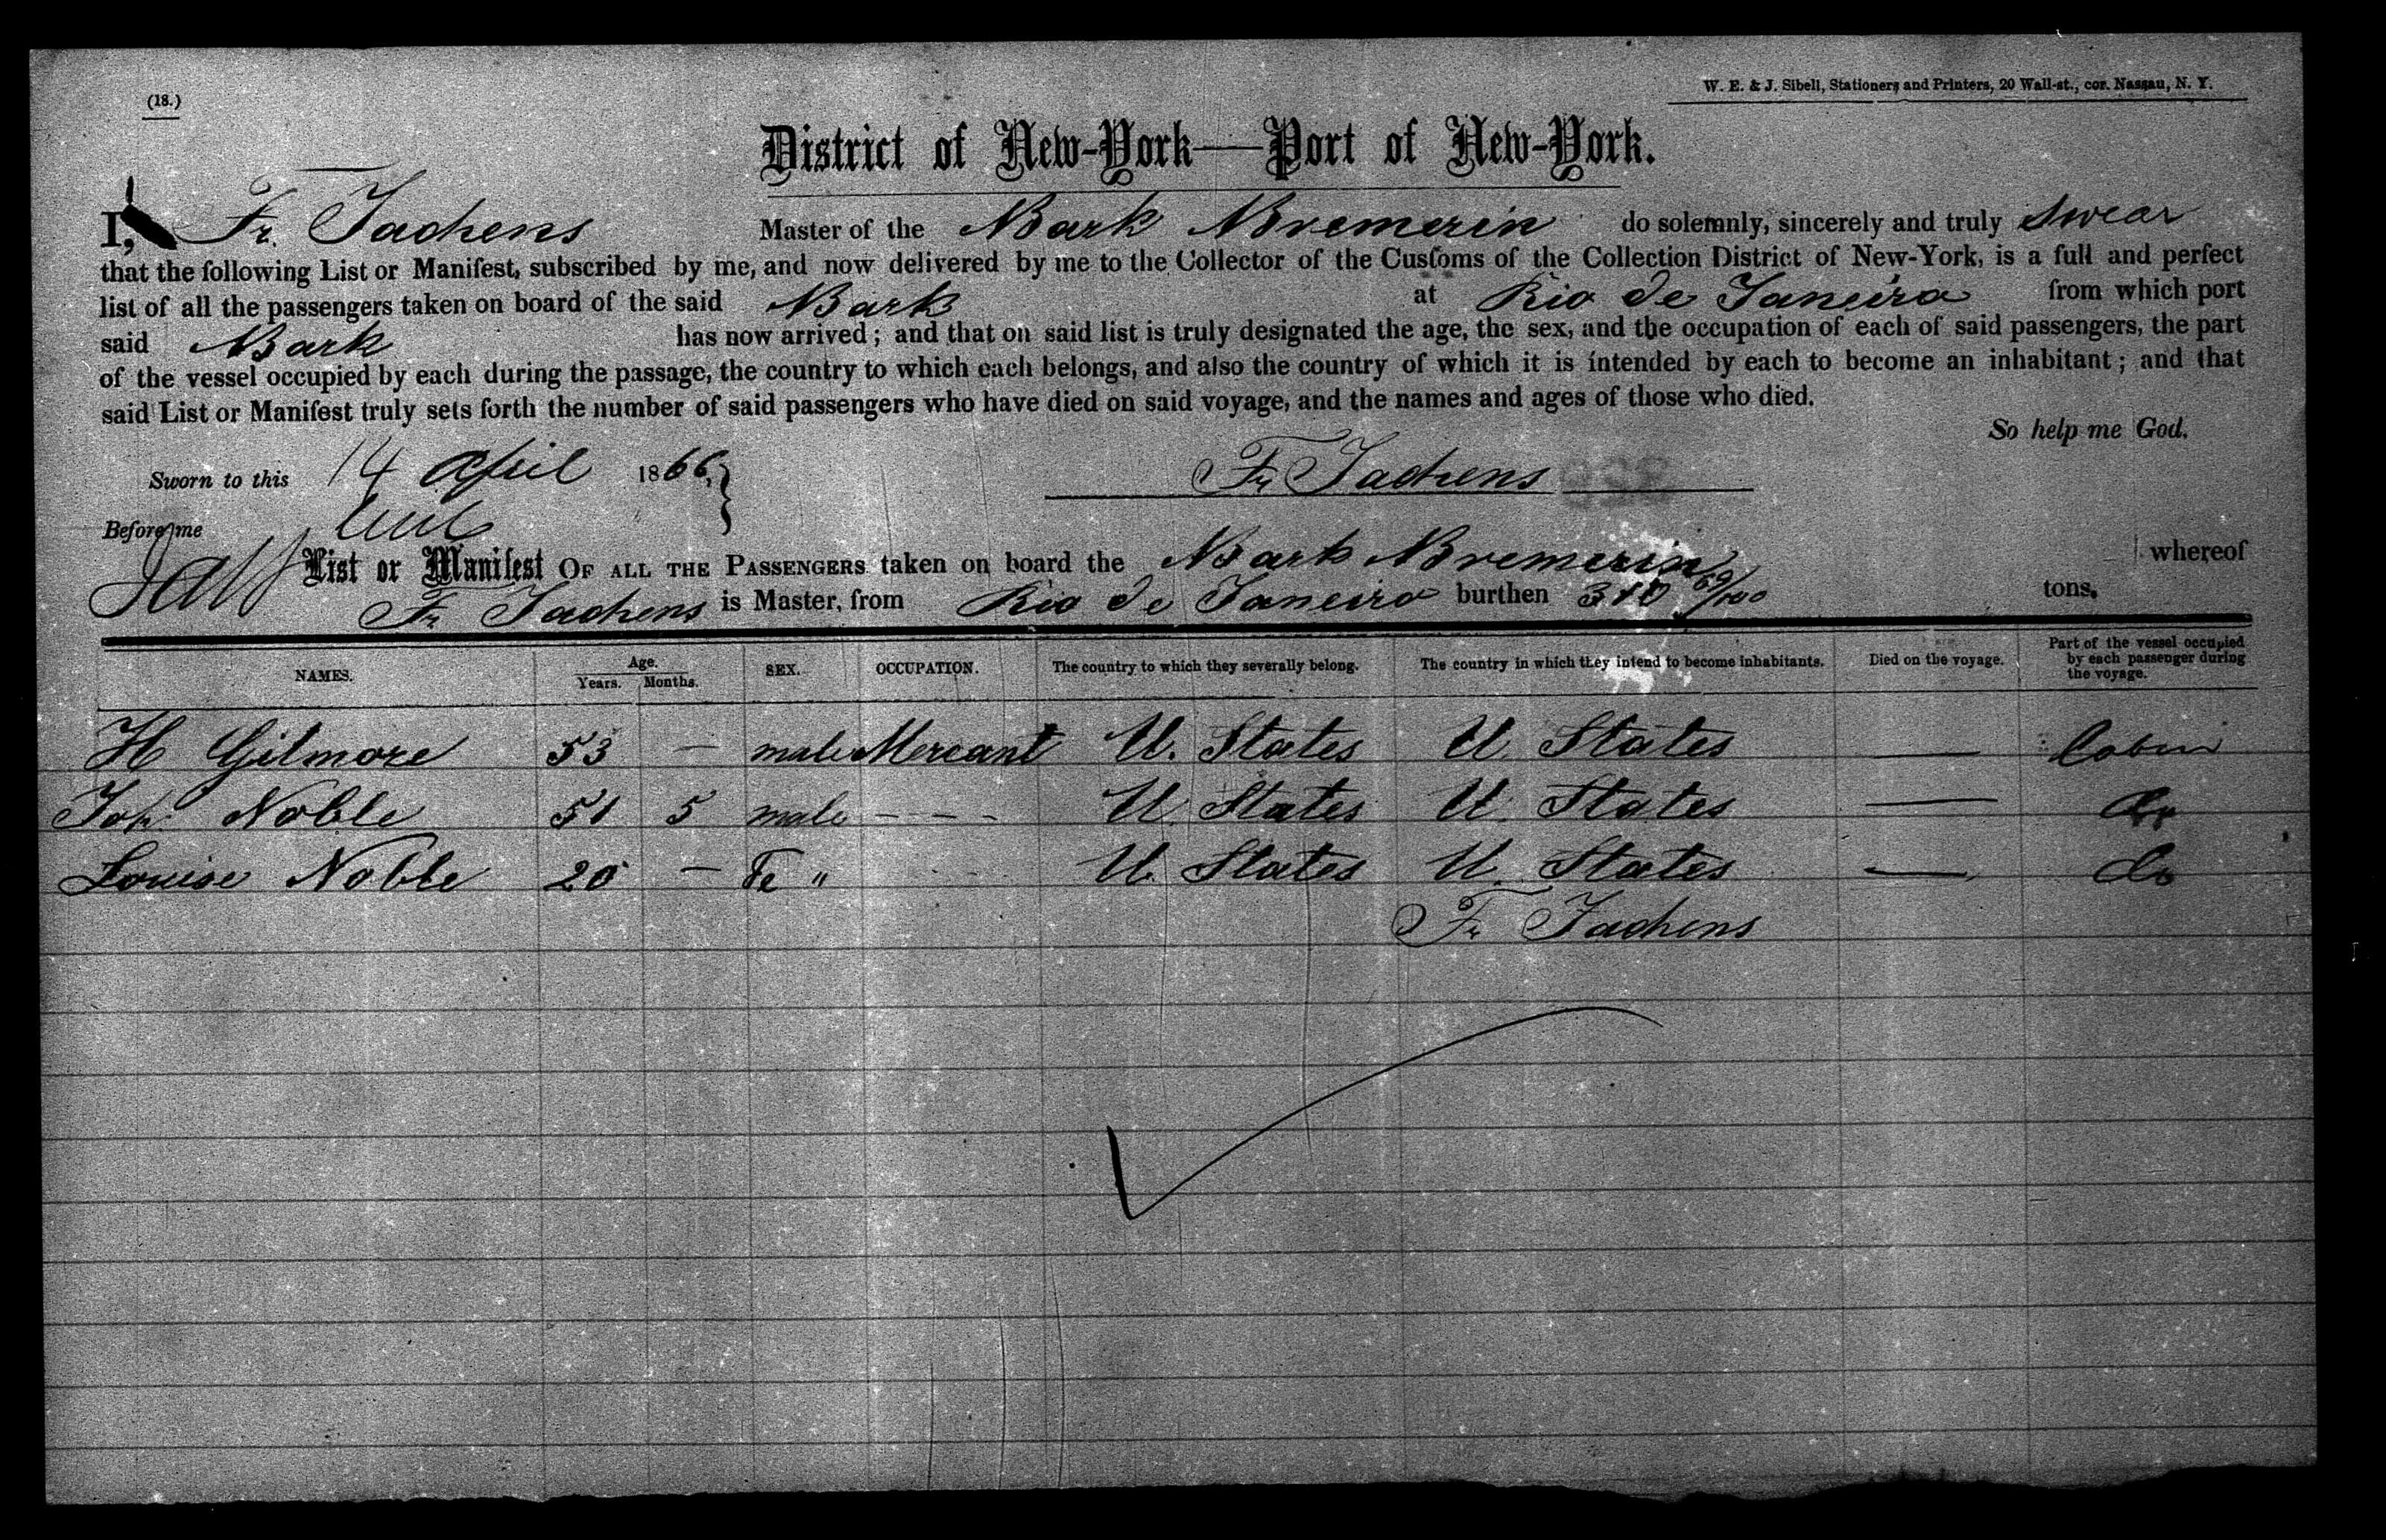 (18.)
W. E. & J. Sibell, Stationers and Printers, 20 Wall-st., cor. Nassau, N. Y.
District of New-York—Port of New-York.
I, Fr. Jachens Master of the Bark Bremerin do solemnly, sincerely and truly swear
that the following List or Manifest, subscribed by me, and now delivered by me to the Collector of the Customs of the Collection District of New-York, is a full and perfect
list of all the passengers taken on board of the said Bark at Rio de Janeiro from which port
said Bark has now arrived; and that on said list is truly designated the age, the sex, and the occupation of each of said passengers, the part
of the vessel occupied by each during the passage, the country to which each belongs, and also the country of which it is intended by each to become an inhabitant; and that
said List or Manifest truly sets forth the number of said passengers who have died on said voyage, and the names and ages of those who died.
So help me God.
Sworn to this 14 April 1866 Fr Jachens
Before me
List or Manifest OF ALL THE PASSENGERS taken on board the Bark Bremerin whereof
Fr Jachens is Master, from Rio de Janeiro burthen 310 69/100 tons.
NAMES. Age. Years. Months. SEX. OCCUPATION. The country to which they severally belong. The country in which they intend to become inhabitants. Died on the voyage. Part of the vessel occupied by each passenger during the voyage.
H Gilmore 53 — male Mercant U. States U. States — Cabin
Joh. Noble 51 5 male - - - U. States U. States — do
Louise Noble 20 — Fe " U. States U. States — do
Fr Jachens